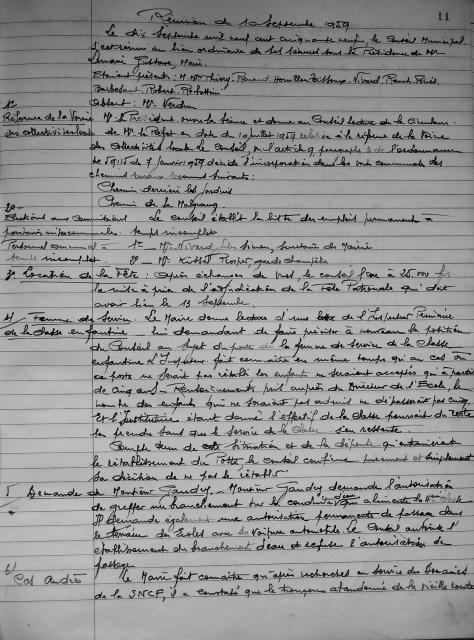 11
Réunion du 10 Septembre 1959
Le dix Septembre mil neuf cent cinquante neuf, le Conseil Municipal
s'est réuni au lieu ordinaire de ses séances sous la Présidence de Mr
Gustave, Maire.
Etaient présents : M. Mrs Thiéry, Renaud, Nivard,
Robert,
Absent : Mr Verdun
1°
Réforme de la Voirie Mr le Président ouvre la séance et donne au Conseil lecture de la circulaire
des collectivités locales de Mr le Préfet en date du 10 juillet 1959 relative à la réforme de la Voirie
des collectivités locales. Le Conseil, vu l'article 9 paragraphe 3 de l'ordonnance
N° 59115 du 7 janvier 1959 décide l'incorporation dans les voies communales des
chemins ruraux reconnus suivants :
Chemin derrière les Jardins
Chemin de la
2°
Elections aux Commissions Le Conseil établit la liste des emplois permanents à
paritaires intercommunales. temps incomplet
Personnel communal à 1° Mr Nivard, secrétaire de Mairie
temps incomplet. 2° Mr Prosper, garde champêtre
3° Location de la Fête : Après échange de vues, le conseil fixe à 25.000 frs
la mise à prix de l'adjudication de la Fête Patronale qui doit
avoir lieu le 13 Septembre.
4/ Femme de Service Le Maire donne lecture d'une lettre de l'Inspecteur Primaire
de la classe enfantine lui demandant de faire préciser à nouveau la position
du Conseil au sujet du poste de la femme de service de la classe
enfantine. L'Inspecteur fait connaître en même temps qu'au cas où
ce poste ne serait pas rétabli les enfants ne seraient acceptés qu'à partir
de cinq ans. Renseignements pris auprès du Directeur de l'Ecole, le
nombre des enfants qui ne seraient pas admis ne dépasserait pas cinq
et l'Institutrice étant donné l'effectif de la classe pourrait du reste
les prendre sans que le service de la classe s'en ressente.
Compte tenu de cette situation et de la dépense qu'entraînerait
le rétablissement du poste le conseil confirme purement et simplement
sa décision de ne pas le rétablir.
5 Demande de Monsieur Gaudy. Monsieur Gaudy demande l'autorisation
de greffer un branchement sur la conduite d'eau qui alimente la
Il demande également une autorisation permanente de passage dans
le terrain des Ecoles avec sa voiture automobile. Le Conseil autorise l'
établissement du branchement d'eau et refuse l'autorisation de
passage.
6/
Cas André Le Maire fait connaître qu'après recherches au service des Domaines
de la SNCF, il a constaté que le tronçon abandonné de la vieille route